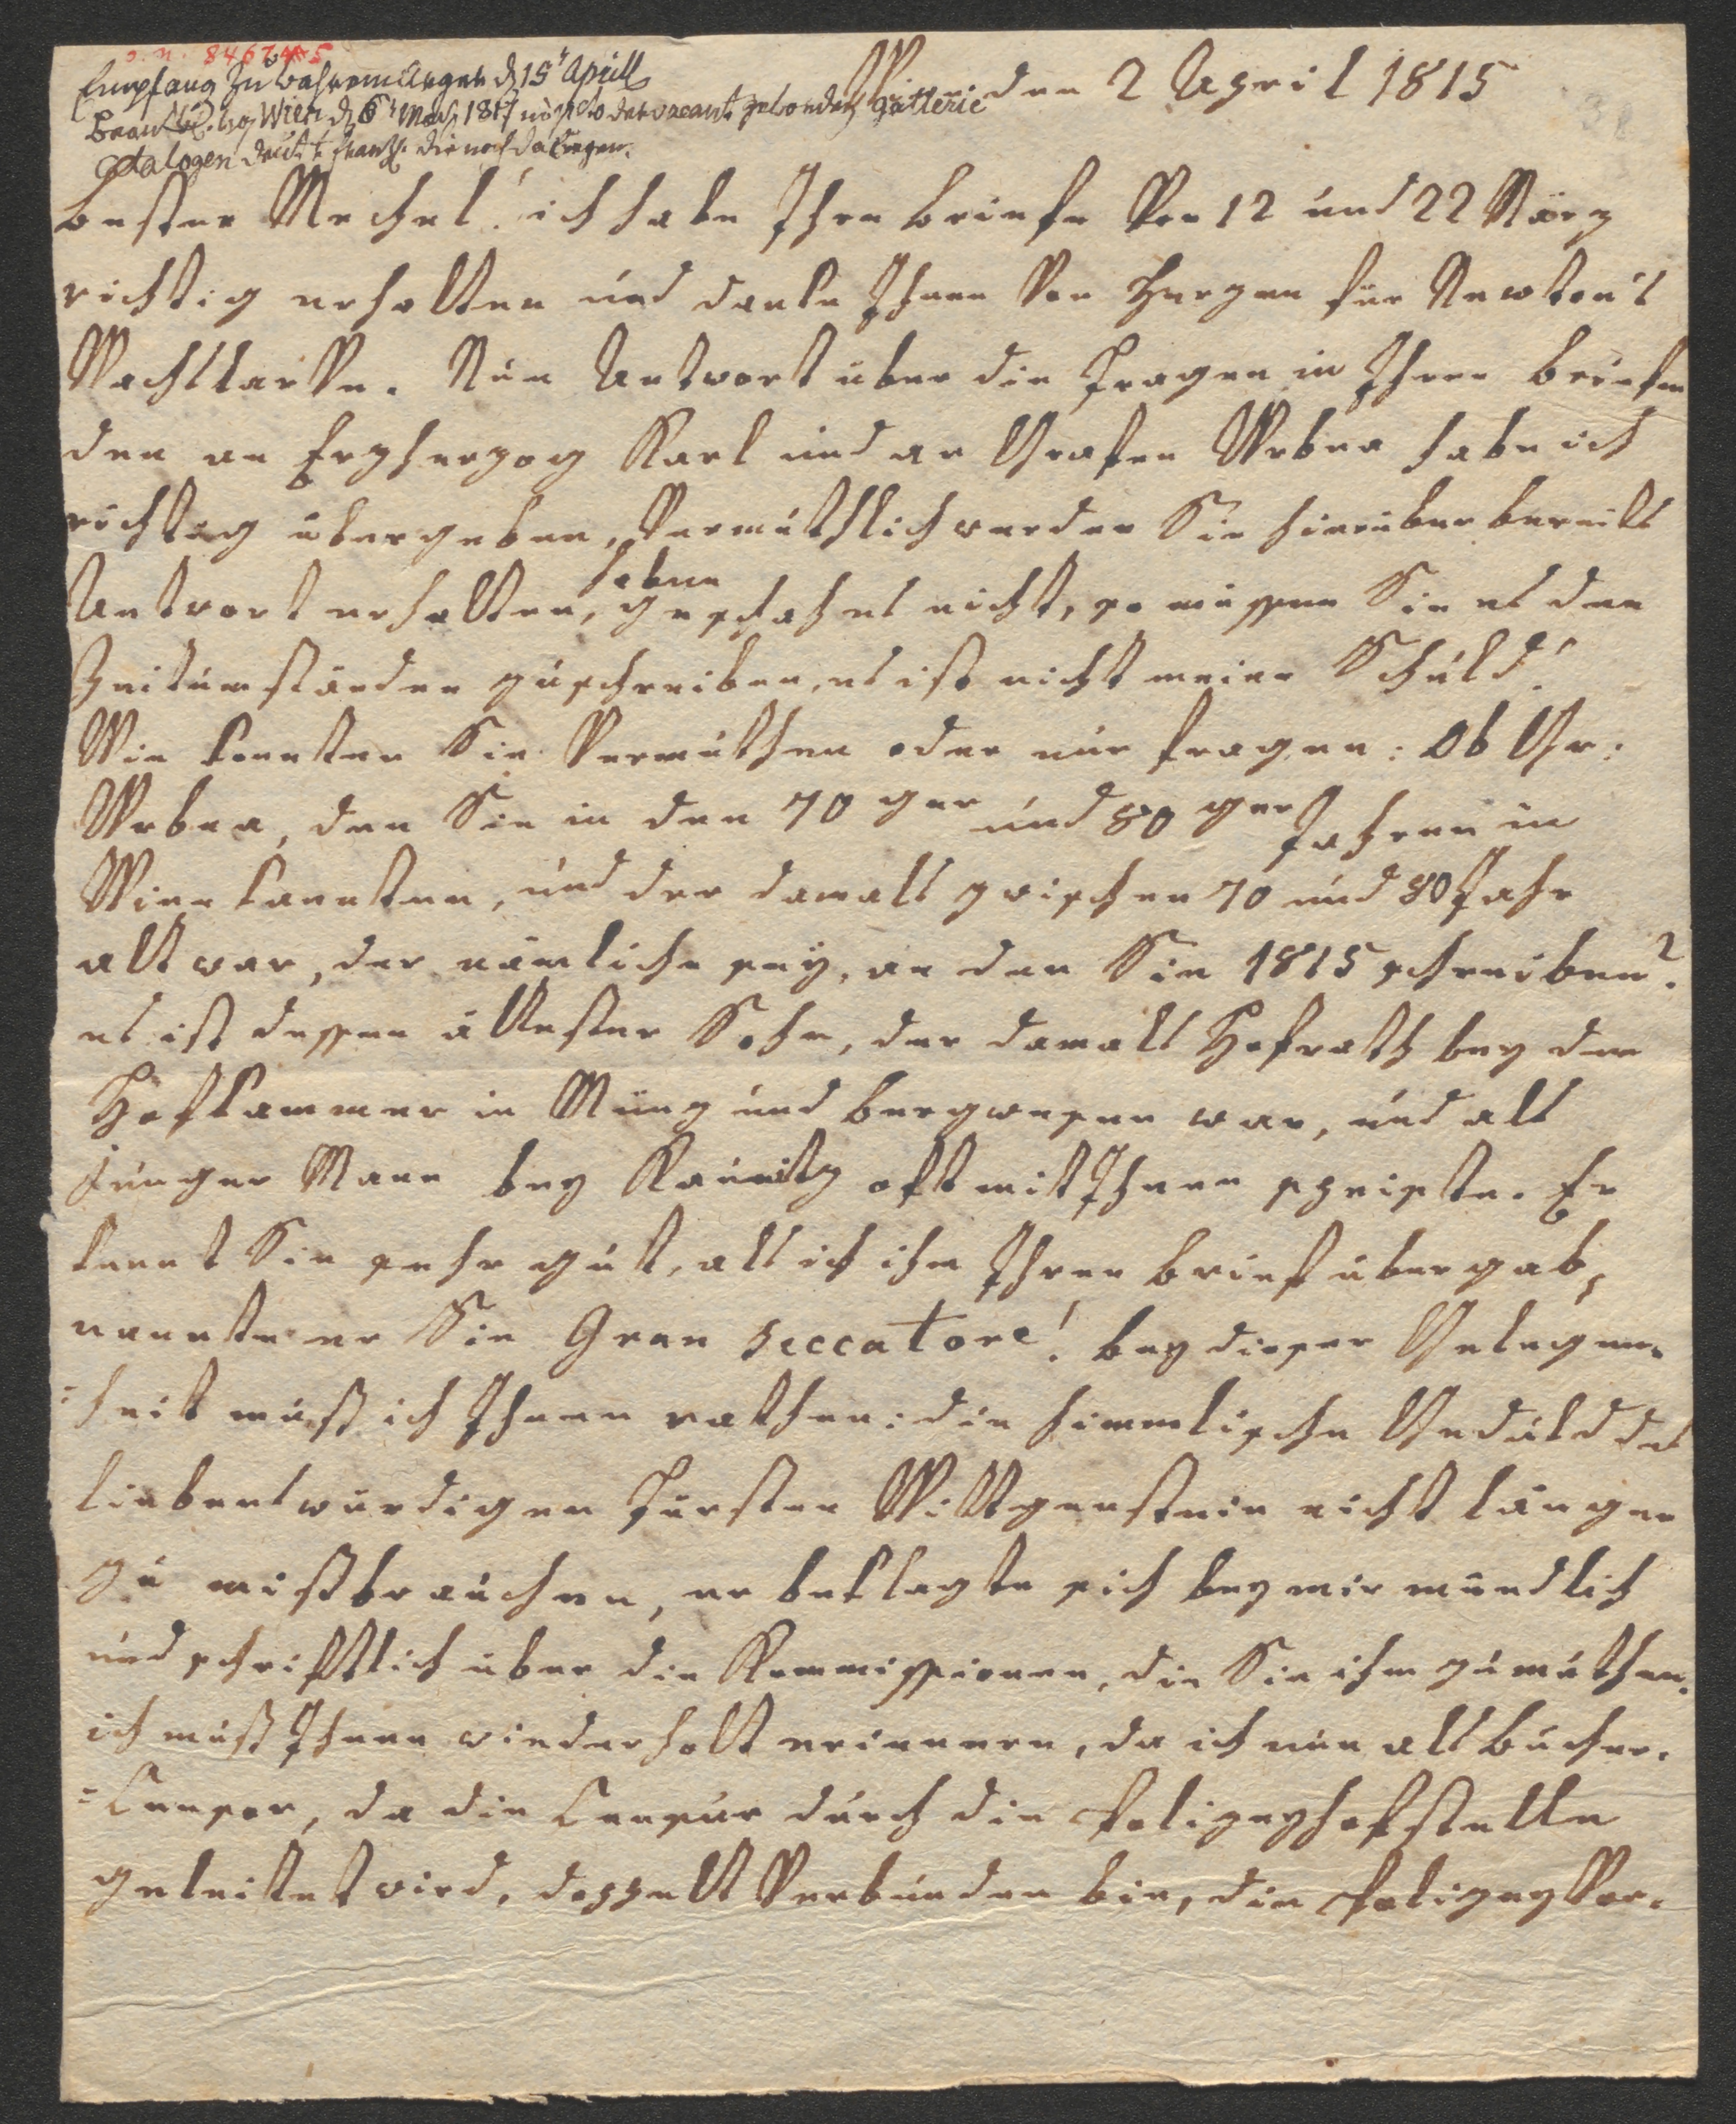 o. n. 8467
Empfang zu wahrem Aerger d 15t Aprill
Beantw. Wien d 6t May 1817 der vacant gewordenen Gallerie
Catalogen deutsch & französ. die noch da liegen.
Wien den 2 April 1815
38
bester Mechel! ich habe Ihre briefe Von 12 und 22 März
richtig erhalten und danke Ihnen Von Herzen für Newton's
Wachslarve. Nun Antwort über die Fragen in Ihren briefen
den an Erzherzog Karl und an Grafen Wrbna habe ich
richtig übergeben, Vermuthlich werden Sie hierüber bereits
Antwort erhalten haben, geschah es nicht, so müssen Sie es den
Zeitumständen zuschreiben, es ist nicht meine Schuld!
Wie konnten Sie Vermuthen oder nur fragen: Ob Gr:
Wrbna, den Sie in den 70 ger und 80 ger Jahren in
Wien kannten, und der damals zwischen 70 und 80 Jahr
alt war, der nämliche seÿ, an den Sie 1815 schreiben?
es ist dessen ältester Sohn, der damals Hofrath bey der
Hofkammer in Münz und bergwesen war, und als
junger Mann bey Kaunitz oft mit Ihnen speiste. Er
kennt Sie sehr gut, als ich ihm Ihren brief übergab,
nannte er Sie Gran Seccatore! bey dieser Gelegen-
=heit muß ich Ihnen rathen: die himmlische Geduld des
liebenswürdigen Fürsten Wittgenstein nicht länger
zu mißbrauchen, er beklagte sich bey mir mündlich
und schriftlich über die Kommissionen, die Sie ihm zumuthen.
ich muß Ihnen wiederholt erinnern, da ich nun als bücher-
=Censor, da die Censur durch die Polizeyhofstelle
geleitet wird, doppelt Verbunden bin, die PolizeyVor-